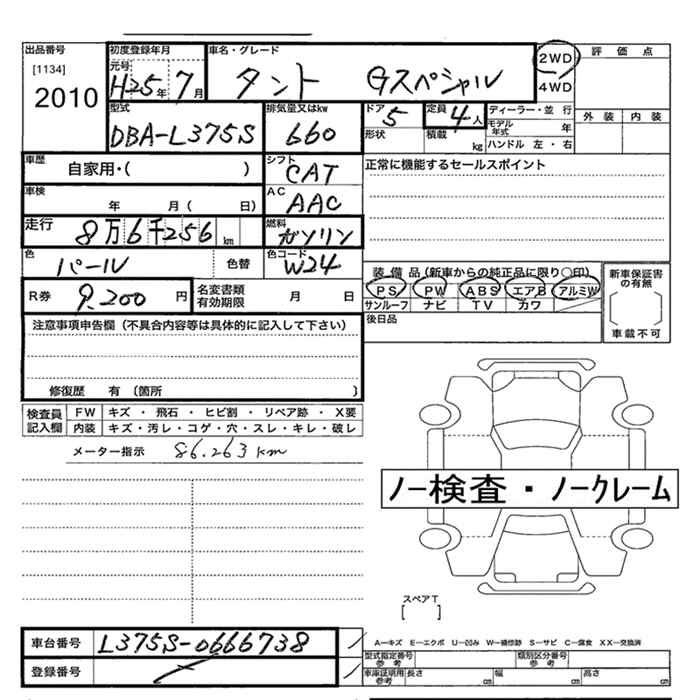 出品番号
[1134]
2010
初度登録年月
元号
H25年 7月
車名・グレード
タント Gスペシャル
2WD
4WD
評価点
外装 内装
型式
DBA-L375S
排気量又はkw
660
ドア
5
形状
定員
4人
積載 kg
ディーラー・並行
モデル年式 年
ハンドル 左・右
車歴
自家用・( )
シフト
CAT
正常に機能するセールスポイント
車検
年 月( 日)
AC
AAC
走行
8万6千256km
燃料
ガソリン
色
パール
色替
色コード
W24
装備品(新車からの純正品に限り○印)
PS PW ABS エアB アルミW
サンルーフ ナビ TV カワ
新車保証書の有無
車載不可
R券
9,200円
名変書類有効期限
月 日
後日品
注意事項申告欄(不具合内容等は具体的に記入して下さい)
修復歴 有(箇所 )
検査員記入欄
FW キズ・飛石・ヒビ割・リペア跡・X要
内装 キズ・汚レ・コゲ・穴・スレ・キレ・破レ
メーター指示 86,263km
ノー検査・ノークレーム
スペアT
[ ]
車台番号 L375S-0666738
登録番号
A―キズ E―エクボ U―凹み W―補修跡 S―サビ C―腐食 XX―交換済
型式指定番号参考
類別区分番号参考
車庫証明用参考
長さ cm
幅 cm
高さ cm